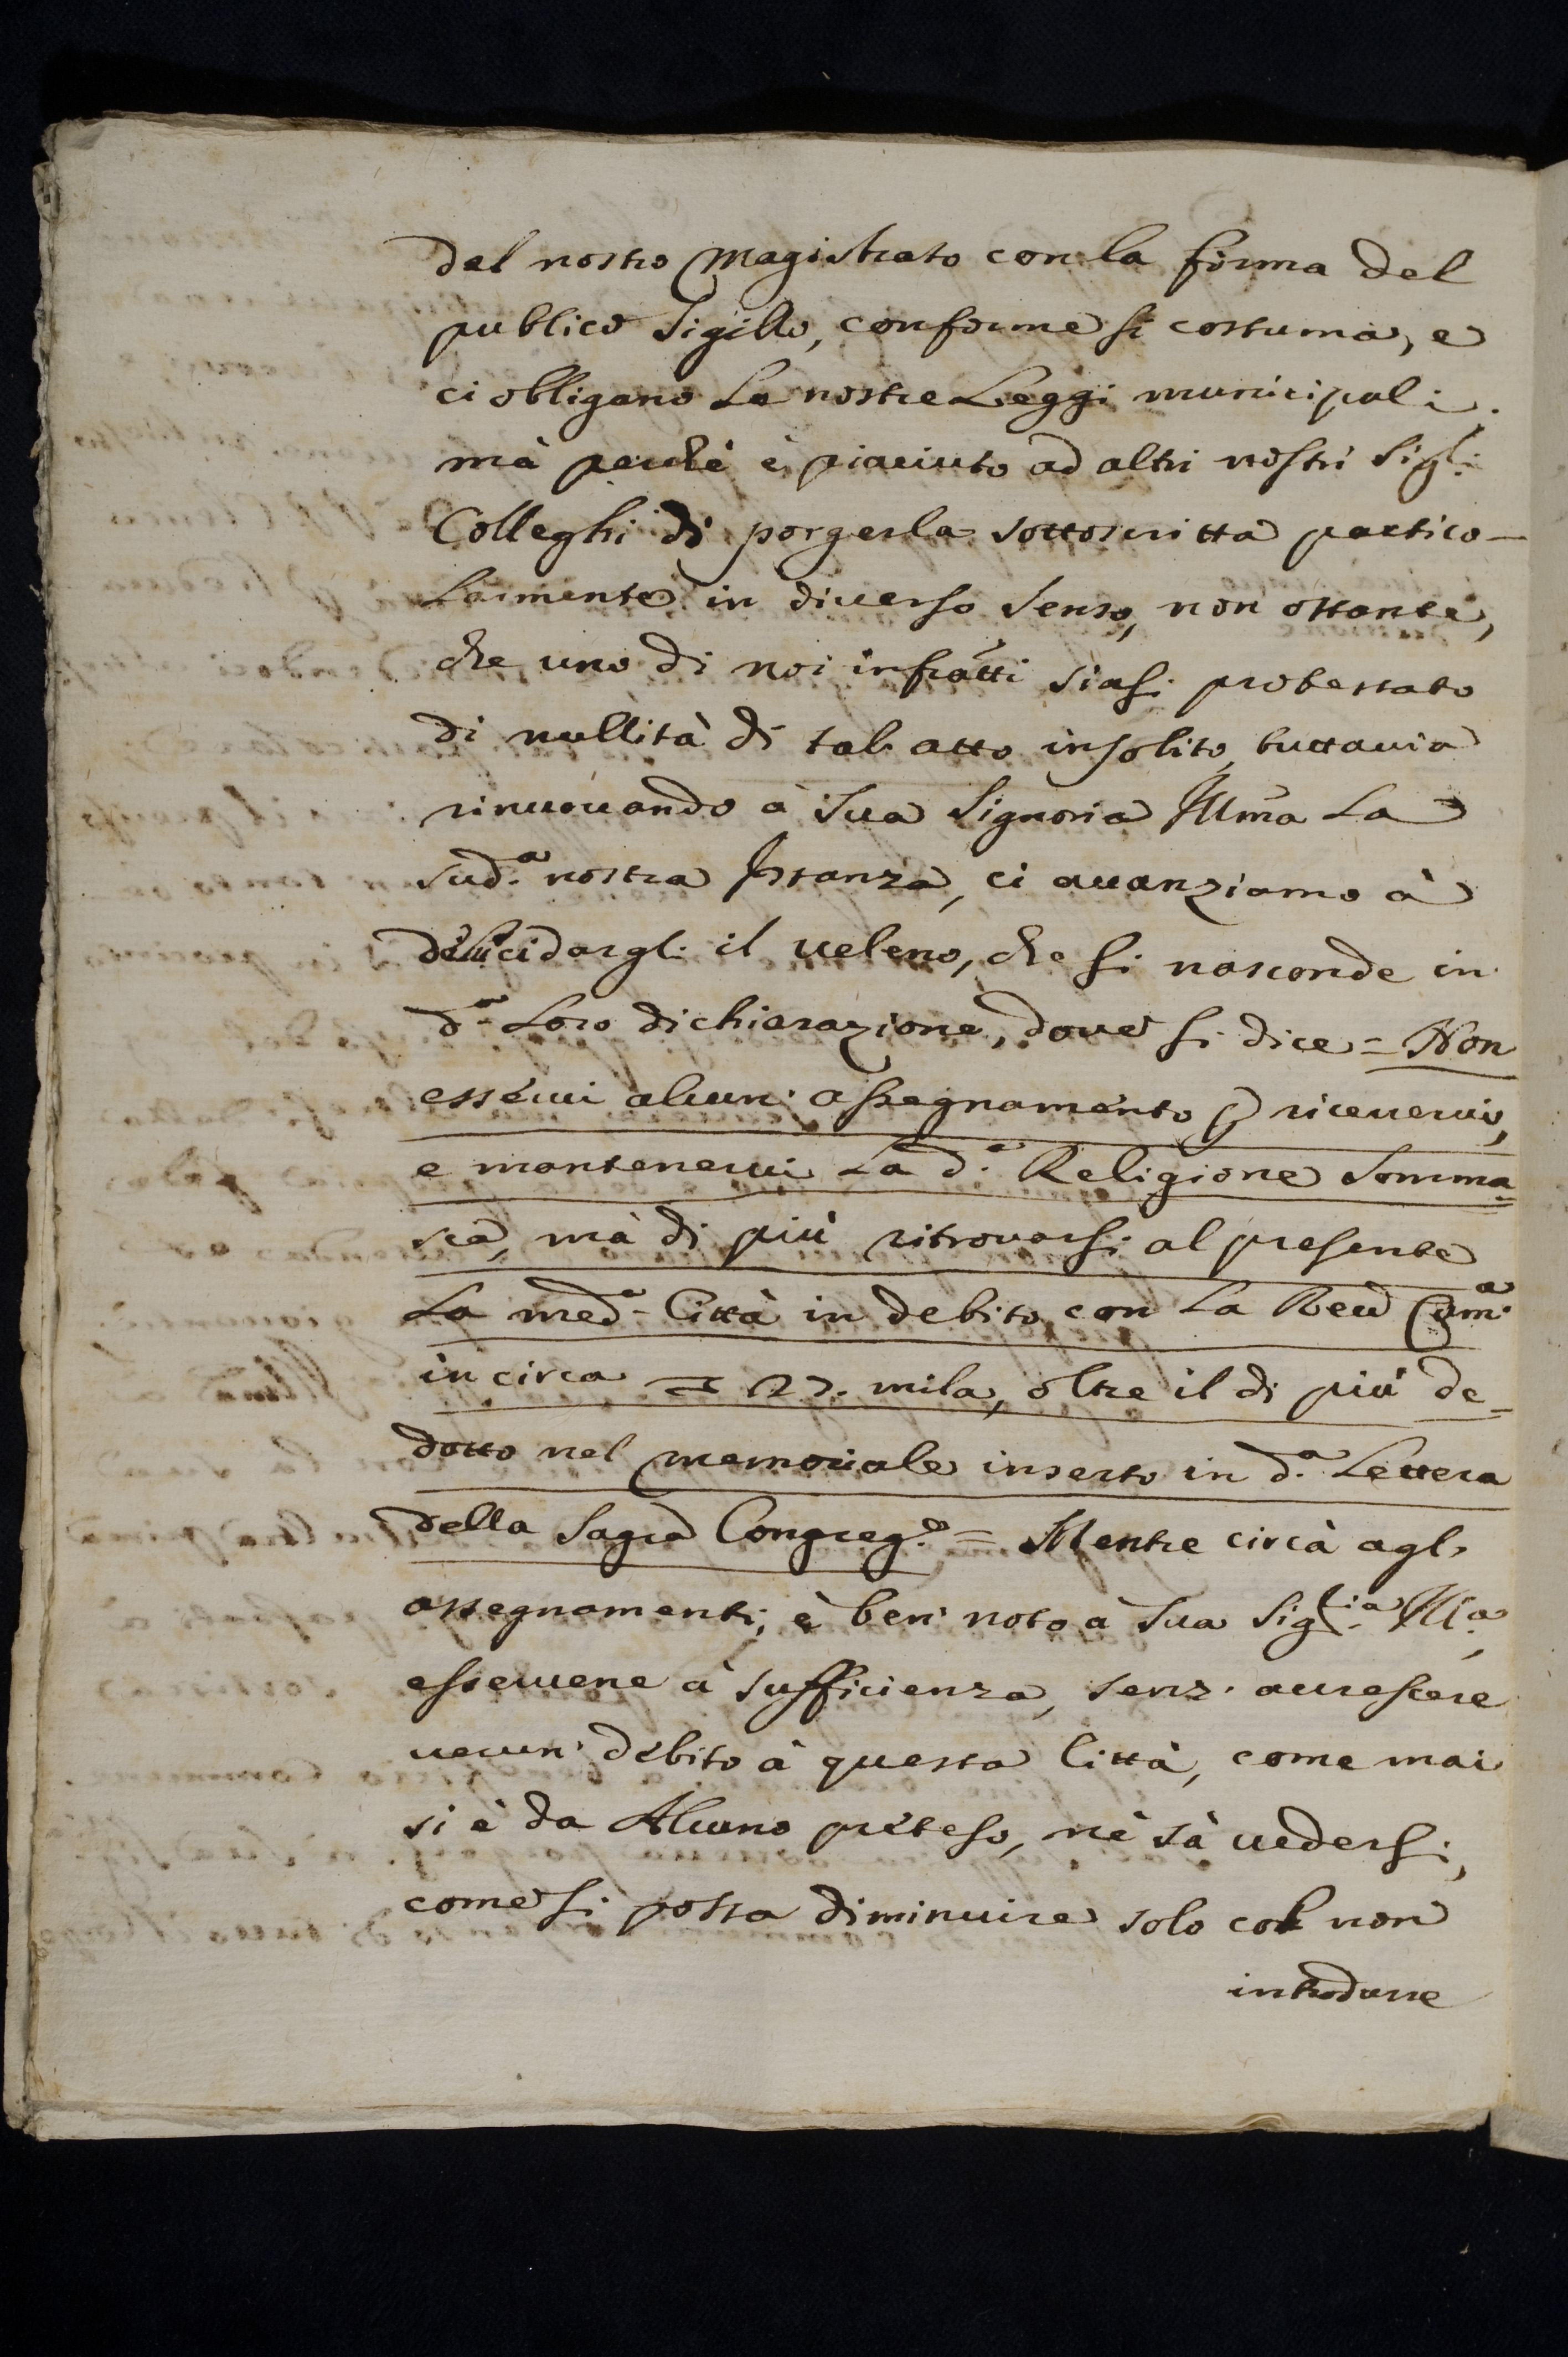 del nostro Magistrato con la firma del
publico Sigillo, conforme si costuma, e
ci obligano Le nostre Leggi municipali.
mà perche è piaciuto ad altri nostri Sig.ri
Colleghi di porgerla sottoscritta partico-
larmente in diverso senso, non ostante,
che uno di noi infratti siasi protestato
di nullità di tal atto insolito, tuttauia
rinuouando à Sua Signoria Illma La
sud.a nostra Istanza, ci auanziamo à
delucidargli il ueleno, che si nasconde in
d.a Loro dichiarazione, doue si dice = Non
esserui alcun' assegnamento p riceuerui,
e mantenerui La d.a Religione Somma=
sca, mà di più ritrouarsi al presente
La med.a Città in debito con La Reu Cam.a
in circa 27. mila, oltre il di più de=
dotto nel memoriale inserto in d.a Lettera
della Sagra Congreg.e = Mentre circà agl'
assegnamenti, è ben' noto à Sua Sig.ria Ill.a,
esseruene à sufficienza, senz' accrescere
uerun' debito à questa Città, come mai
si è da Alcuno preteso, nè sà uedersi,
come si possa diminuire solo col non
introdurre